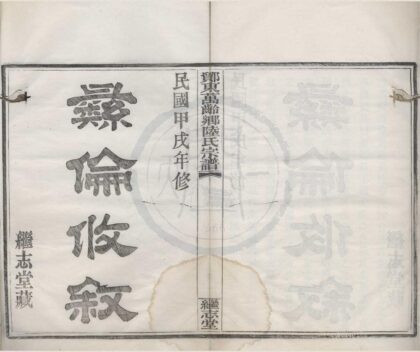 鄮東萬齡鄉陸氏宗譜
繼志堂
民國甲戌年修
彝倫攸敘
繼志堂藏